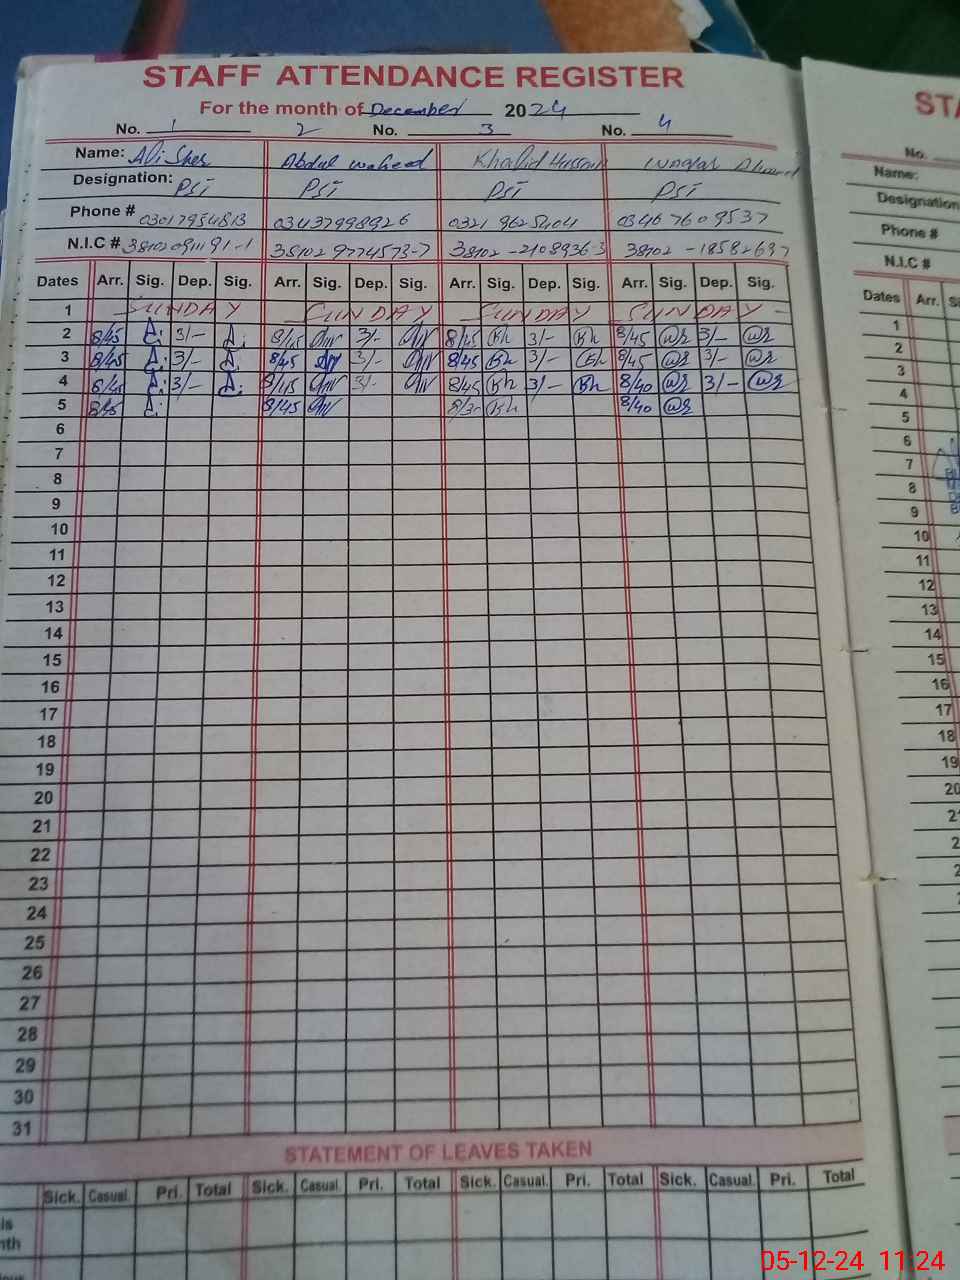 STAFF ATTENDANCE REGISTER
For the month of December 2024
No. 1 2 No. 3 No. 4
Name: Ali Sher Abdul waheed Khalid Hussain Waqar Ahmed
Designation: PST PST PST PST
Phone # 03017954813 03437998926 0321 9625404 0346 7609537
N.I.C # 38102 9774573-7 38102 -2108936-3
Dates Arr. Sig. Dep. Sig. Arr. Sig. Dep. Sig. Arr. Sig. Dep. Sig. Arr. Sig. Dep. Sig.
1 SUNDAY SUNDAY SUNDAY SUNDAY
2 8/45 A. 3/- A. 8/45 3/- 8/45 Kh 3/- Kh 8/45 3/-
3 8/45 A. 3/- A. 8/45 3/- 8/45 Kh 3/- Kh 8/45 3/-
4 8/45 A. 3/- A. 8/45 3/- 8/45 Kh 3/- Kh 8/40 3/-
5 8/45 A. 8/45 8/3 Kh 8/40
6
7
8
9
10
11
12
13
14
15
16
17
18
19
20
21
22
23
24
25
26
27
28
29
30
31
STATEMENT OF LEAVES TAKEN
Sick. Casual. Pri. Total Sick. Casual. Pri. Total Sick. Casual. Pri. Total Sick. Casual. Pri. Total
is
nth
STA
No.
Name:
Designation
Phone #
N.I.C #
Dates Arr. Si
1
2
3
4
5
6
7
8
9
10
11
12
13
14
15
16
17
18
19
20
05-12-24 11:24